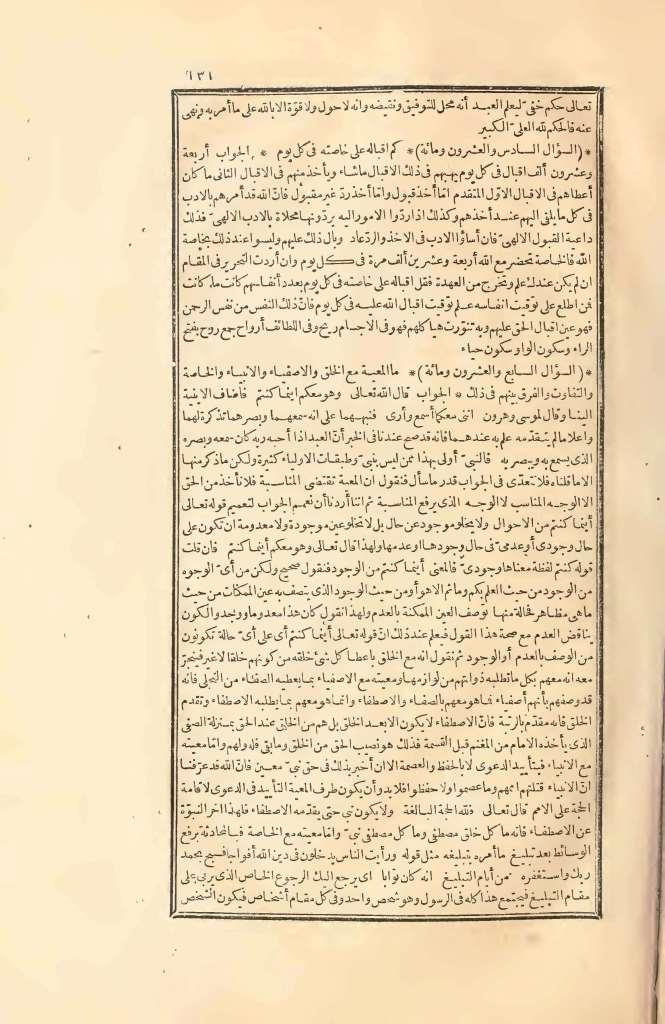 ١٣١
تعالى حكم خفي ليعلم العبد أنه محل للتوفيق ونقيضه وانه لا حول ولا قوّة الا بالله على ما أمر به ونهى
عنه فالحكم لله العلىّ الكبير
*(السؤال السادس والعشرون ومائة)* كم اقباله على خاصته فى كل يوم * الجواب أربعة
وعشرون ألف اقبال فى كل يوم يهبهم فى ذلك الاقبال ما شاء ويأخذ منهم فى الاقبال الثانى ما كان
أعطاهم فى الاقبال الاوّل المتقدم امّا أخذ قبول وامّا أخذ ردّ غير مقبول فانّ الله قد أمرهم بالادب
فى كل ما يلقى اليهم عند أخذهم وكذلك اذا ردّوا الامور اليه يردّونها محلاة بالادب الالهىّ فذلك
داعية القبول الالهىّ فان أساؤا الادب فى الاخذ والردّ عاد وبال ذلك عليهم وليسوا عند ذلك بخاصة
الله فالخاصة تحضر مع الله أربعة وعشرين ألف مرة فى كل يوم وان أردت التحرير فى المقام
ان لم يكن عندك علم وتخرج من العهدة فقل اقباله على خاصته فى كل يوم بعدد أنفاسهم كانت ما كانت
فمن اطلع على توقيت انفاسه علم توقيت اقبال الله عليه فى كل يوم فانّ ذلك النفس من نفس الرحمن
فهو عين اقبال الحق عليهم وبه تنوّرت هيا كلهم فهو فى الاجسام ريح وفى اللطائف أرواح جمع روح بفتح
الراء وسكون الواو سكون حياء
*(السؤال السابع والعشرون ومائة)* ما المعية مع الخلق والاصفياء والانبياء والخاصة
والتفاوت والفرق بينهم فى ذلك * الجواب قال الله تعالى وهو معكم اينما كنتم فأضاف الاينية
الينا وقال لموسى وهرون اننى معكما أسمع وأرى فنبههما على انه سمعهما وبصرهما تذكرة لهما
واعلاما لم يتقدّمه علم به عندهما فانه قد صح عندنا فى الخبر أنّ العبد اذا أحبه ربه كان سمعه وبصره
الذى يسمع به ويبصر به فالنبىّ أولى بهذا ممن ليس بنبىّ وطبقات الاولياء كثيرة ولكن ما ذكر منها
الا ما قلناه فلا نتعدّى فى الجواب قدر ما سأل فنقول ان المعية تقتضى المناسبة فلا نأخذ من الحق
الا الوجه المناسب لا الوجه الذى يرفع المناسبة ثم اننا أردنا أن نعمم الجواب لتعميم قوله تعالى
أينما كنتم من الاحوال ولا يخلو موجود عن حال بل لا تخلو عين موجودة ولا معدومة ان تكون على
حال وجودى أو عدمى فى حال وجودها أو عدمها ولهذا قال تعالى وهو معكم أينما كنتم فان قلت
قوله كنتم لفظة معناها وجودىّ فالمعنى أينما كنتم من الوجود فنقول صحيح ولكن من أىّ الوجوه
من الوجود من حيث العلم بكم وما ثم الا هو أو من حيث الوجود الذى يتصف به عين الممكنات من حيث
ما هى مظاهر فحالة منها توصف العين الممكنة بالعدم ولهذا نقول كان هذا معدوما ووجد والكون
يناقض العدم مع صحة هذا القول فيعلم عند ذلك انّ قوله تعالى أينما كنتم أى على أىّ حالة تكونون
من الوصف بالعدم أو الوجود ثم نقول انه مع الخلق باعطاء كل شئ خلقه من كونهم خلقا لا غير فينجرّ
معه انه معهم بكل ما تطلبه ذواتهم من لوازمها ومعيته مع الاصفياء بما يعطيه الصفاء من التجلى فانه
قد وصفهم بأنهم أصفياء فما هو معهم بالصفاء والاصطفاء وانما هو معهم بما يطلبه الاصطفاء وتقدم
الخلق فانه مقدّم بالرتبة فانّ الاصطفاء لا يكون الا بعد الخلق بل هم من الخلق عند الحق بمنزلة الصفى
الذى يأخذه الامام من المغنم قبل القسمة فذلك هو نصيب الحق من الخلق وما بقى فله ولهم وامّا معيته
مع الانبياء فبتأييد الدعوى لا بالحفظ والعصمة الا ان أخبر بذلك فى حق نبىّ معين فانّ الله قد عرّفنا
انّ الانبياء قتلتهم اممهم وما عصموا ولا حفظوا فلا بد وأن يكون ظرف المعية التأييد فى الدعوى لاقامة
الحجة على الامم قال تعالى فلله الحجة البالغة ولا يكون نبى حتى يقدّمه الاصطفاء فلهذا اخر النبوّة
عن الاصطفاء فانه ما كل خلق مصطفى وما كل مصطفى نبىّ وامّا معيته مع الخاصة فبالمحادثة برفع
الوسائط بعد تبليغ ما أمر به بتبليغه مثل قوله ورأيت الناس يدخلون فى دين الله أفواجا فسبح بحمد
ربك واستغفره من أيام التبليغ انه كان توّابا اى يرجع اليك الرجوع الخاص الذى يربى على
مقام التبليغ فيجتمع هذا كله فى الرسول وهو شخص واحد وفى كل مقام أشخاص فيكون الشخص